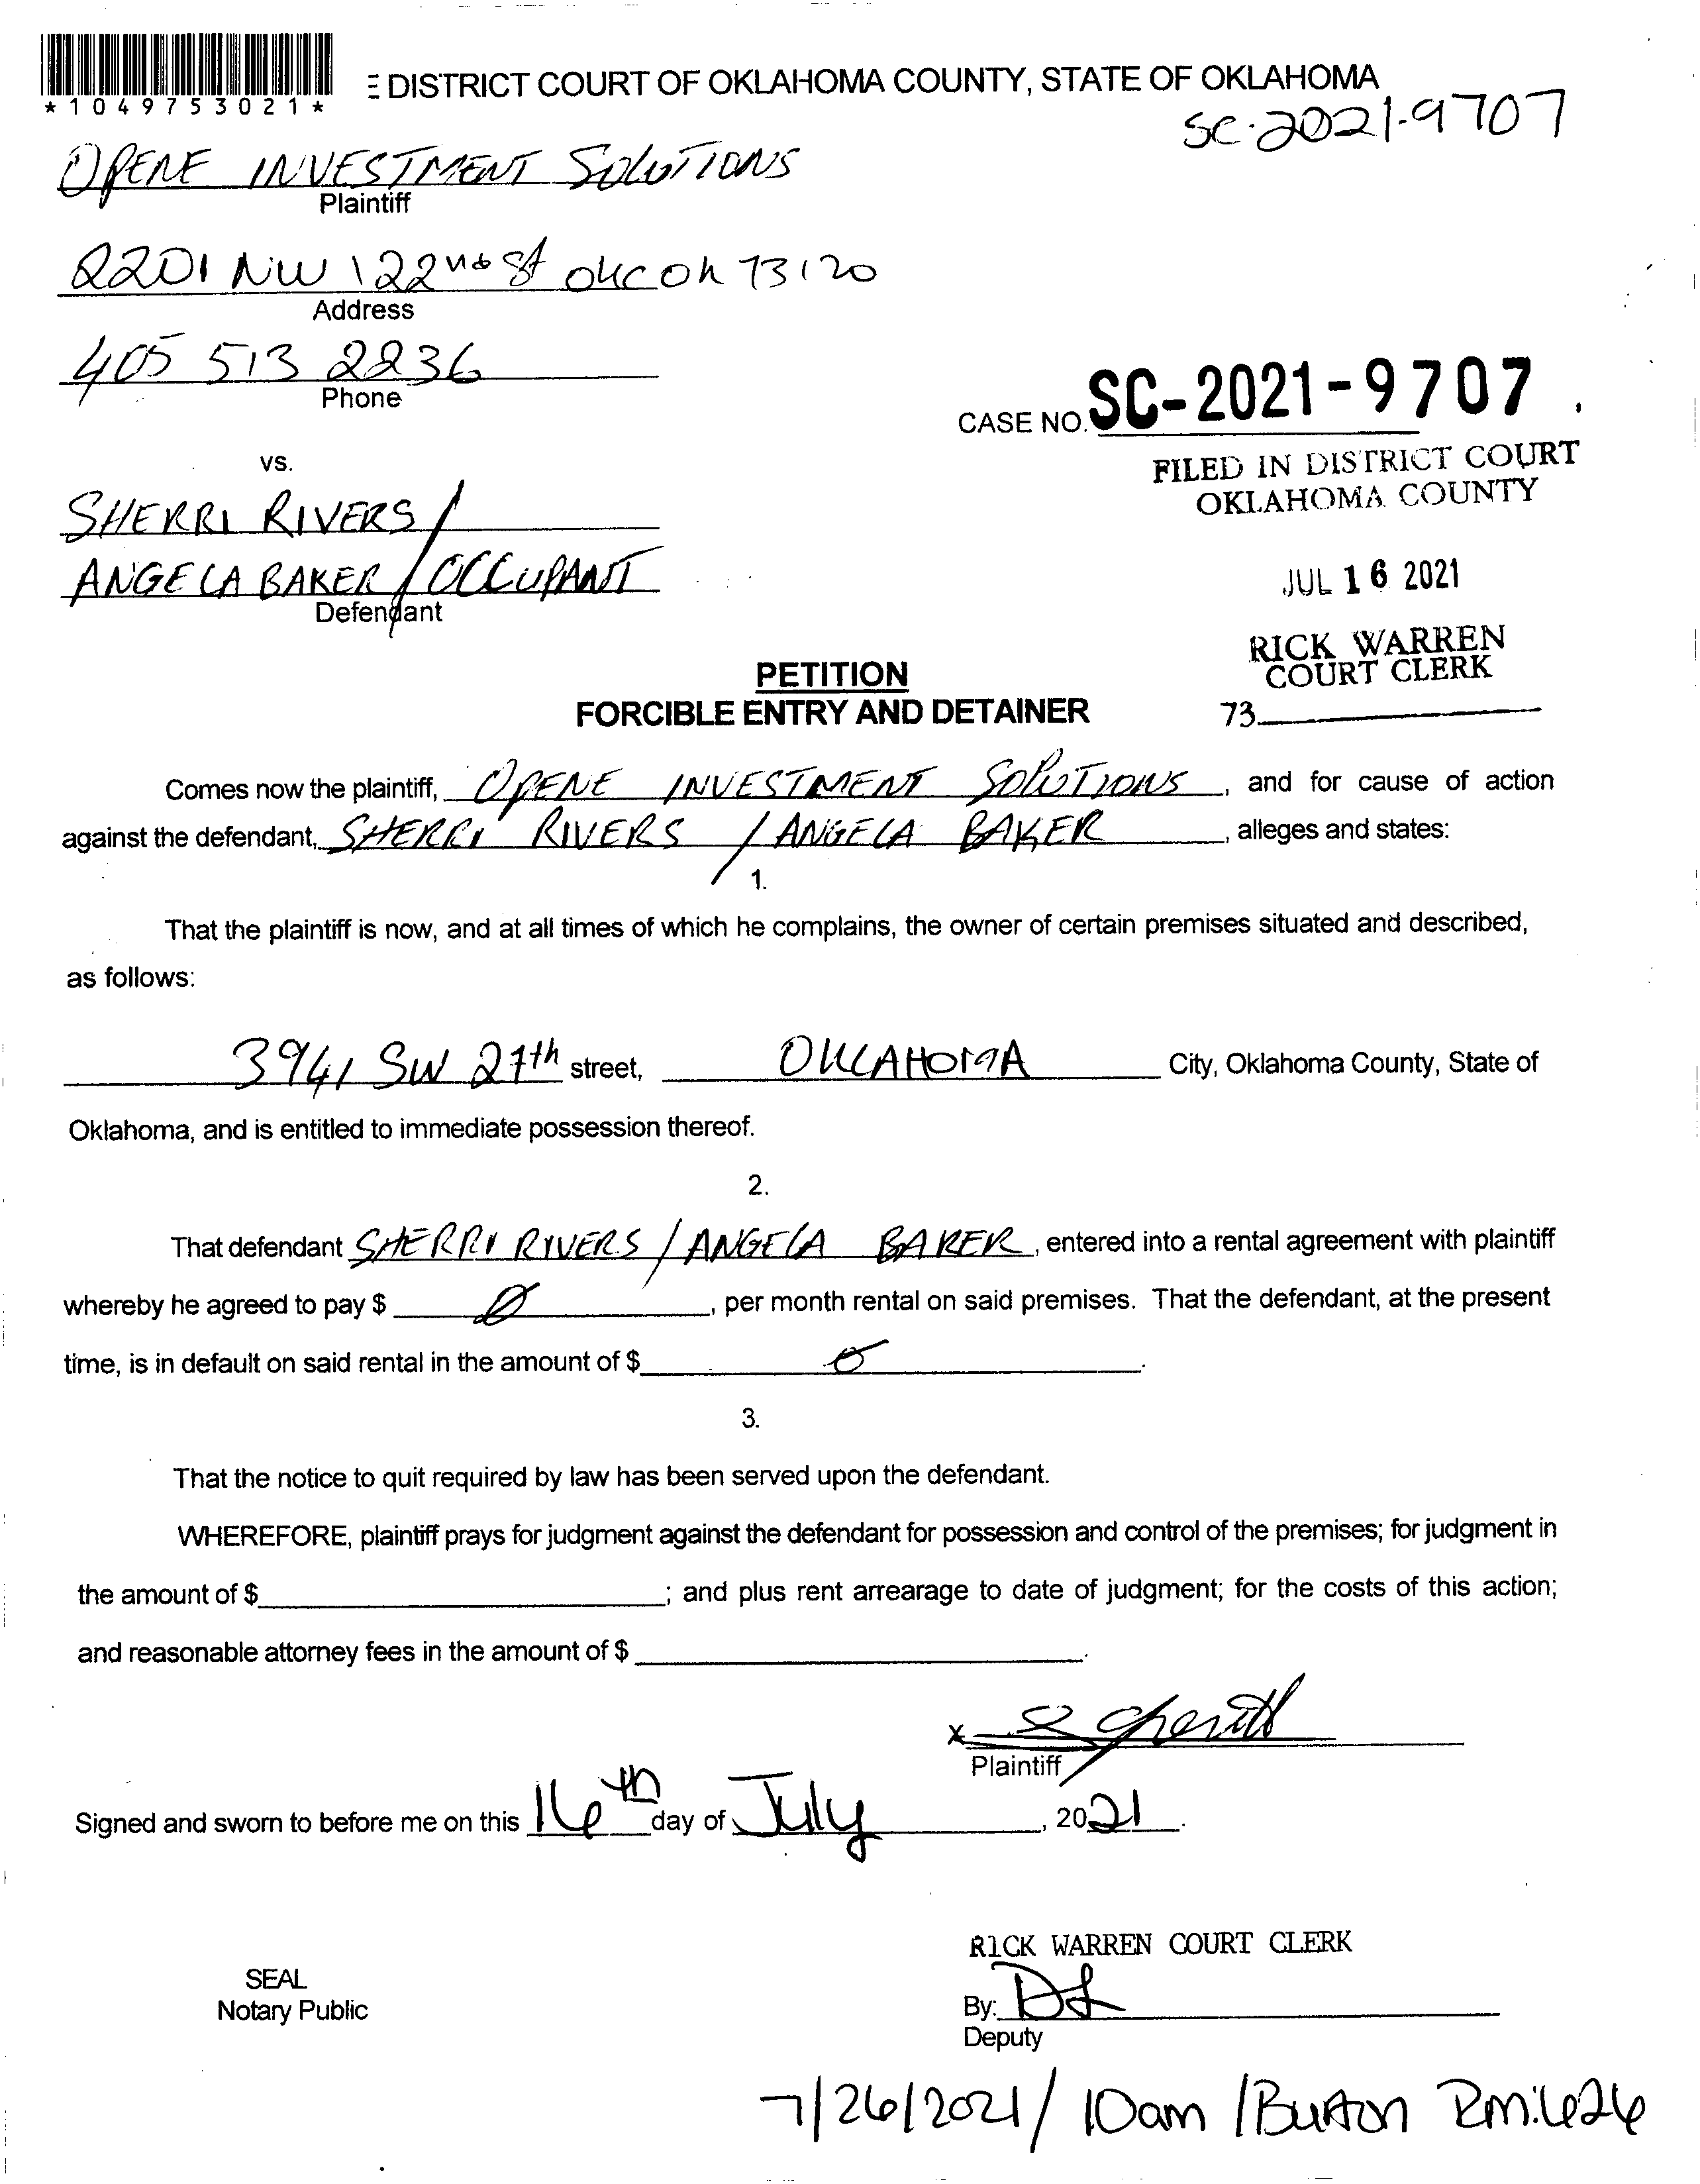 *1049753021*
E DISTRICT COURT OF OKLAHOMA COUNTY, STATE OF OKLAHOMA
SC-2021-9707
OPENE INVESTMENT SOLUTIONS
Plaintiff
2201 NW 122nd St OKC OK 73120
Address
405 513 2236
Phone
CASE NO. SC-2021-9707
vs.
FILED IN DISTRICT COURT
OKLAHOMA COUNTY
SHERRI RIVERS /
ANGELA BAKER / OCCUPANT
Defendant
JUL 16 2021
RICK WARREN
COURT CLERK
73
PETITION
FORCIBLE ENTRY AND DETAINER
Comes now the plaintiff, OPENE INVESTMENT SOLUTIONS, and for cause of action
against the defendant, SHERRI RIVERS / ANGELA BAKER, alleges and states:
1.
That the plaintiff is now, and at all times of which he complains, the owner of certain premises situated and described,
as follows:
3941 SW 27th street, OKLAHOMA City, Oklahoma County, State of
Oklahoma, and is entitled to immediate possession thereof.
2.
That defendant SHERRI RIVERS / ANGELA BAKER, entered into a rental agreement with plaintiff
whereby he agreed to pay $ 0, per month rental on said premises. That the defendant, at the present
time, is in default on said rental in the amount of $ 0.
3.
That the notice to quit required by law has been served upon the defendant.
WHEREFORE, plaintiff prays for judgment against the defendant for possession and control of the premises; for judgment in
the amount of $ ; and plus rent arrearage to date of judgment; for the costs of this action;
and reasonable attorney fees in the amount of $ .
x
Plaintiff
Signed and sworn to before me on this 16th day of July, 2021.
RICK WARREN COURT CLERK
SEAL
Notary Public
By: DL
Deputy
7/26/2021/ 10am /Burton Rm:626